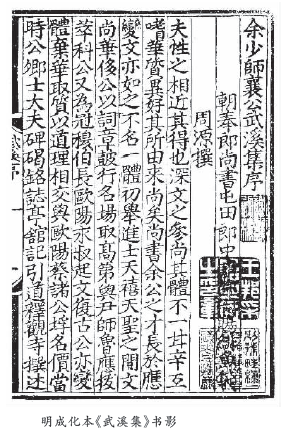 余少師襄公武溪集序
朝奉郎尚書屯田郎中
周源撰
夫性之相近其得也深文之參尚其體不一甘辛互
嗜華質異好其所由來尚矣尚書余公之才長於應
變文亦如之不名一體初舉進士天禧天聖之間文
尚華侈公以詞章行名場取高第與尹師魯應拔
萃科公又為冠穆伯長歐陽永叔起文復古公亦變
體棄華取質以道理相交與歐陽蔡諸公埒名價當
時公卿士大夫碑碣銘誌亭館記引道釋觀寺撰述
明成化本《武溪集》书影